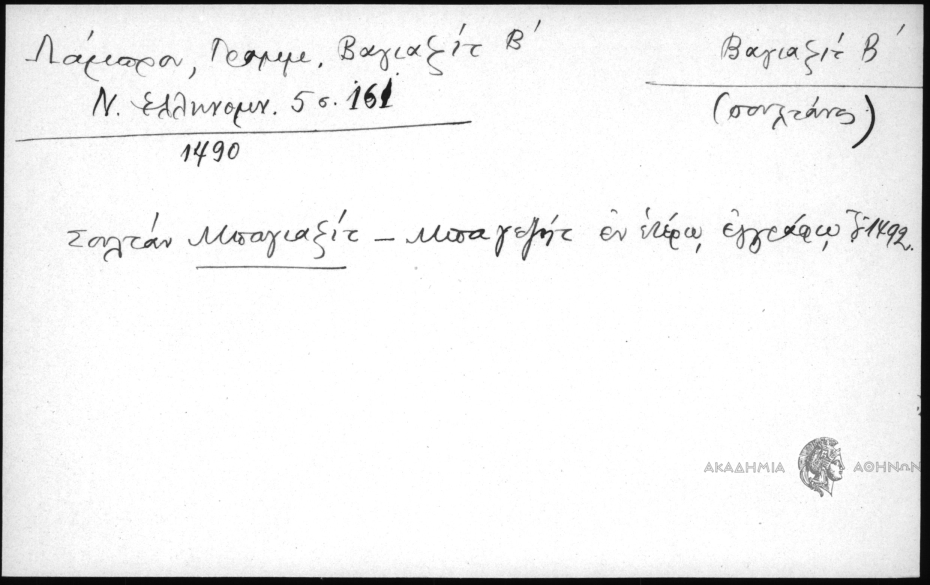 Λάμπρου, Γραμμ. Βαγιαζὶτ Β΄
Ν. Ἑλληνομν. 5 σ. 161
1490
Βαγιαζὶτ Β΄
(σουλτάνος)
Σουλτὰν Μπαγιαζὶτ – Μπαγεζὴτ ἐν ἑτέρῳ ἐγγράφῳ 1492.
ΑΚΑΔΗΜΙΑ ΑΘΗΝΩΝ